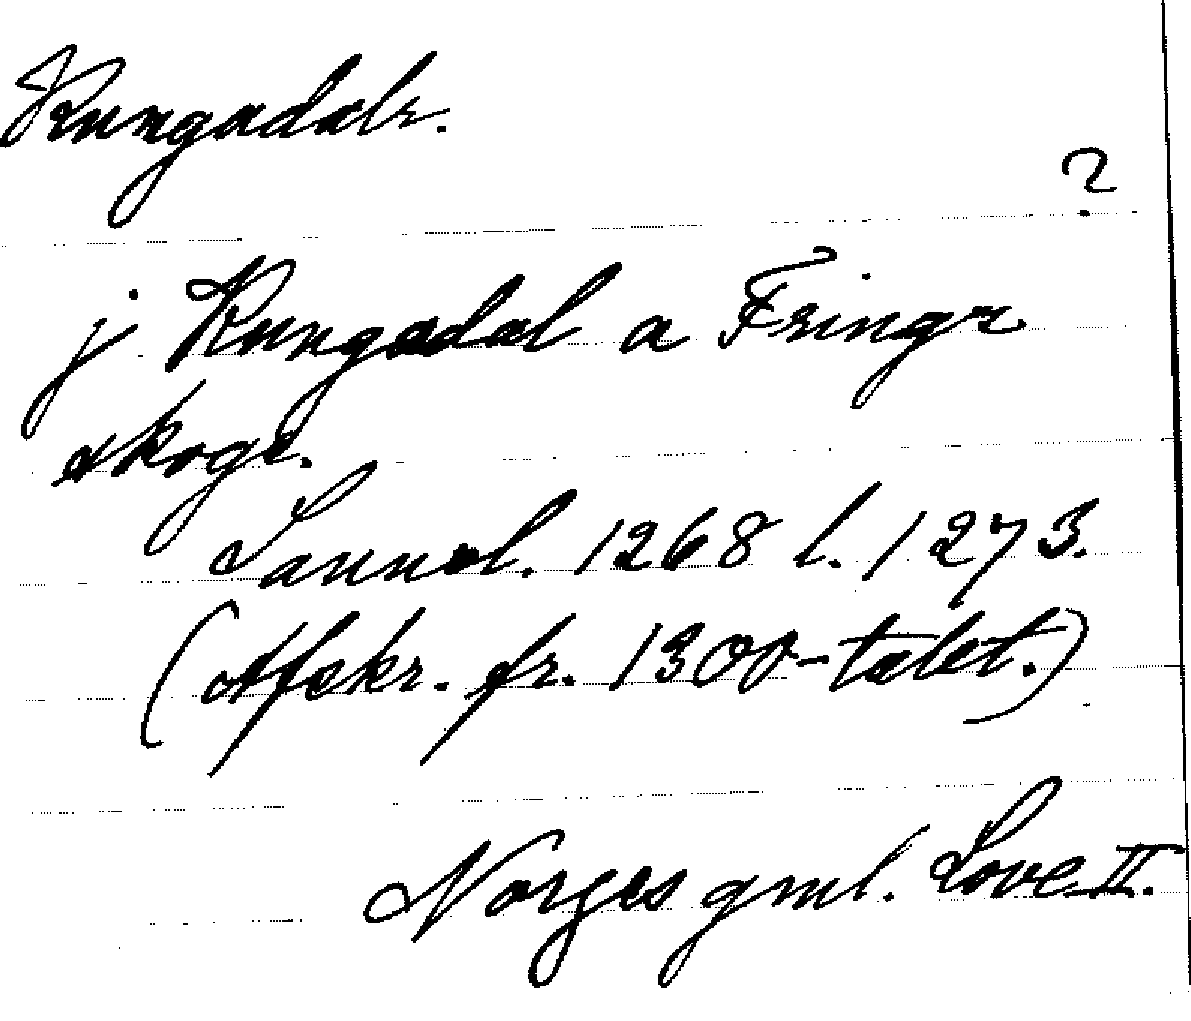 Rungadalr.
?
j Rungadal a Fringr
skoge.
Sannol. 1268 l. 1273.
(Afskr. fr. 1300-talet.)
Norges gml. Love II.